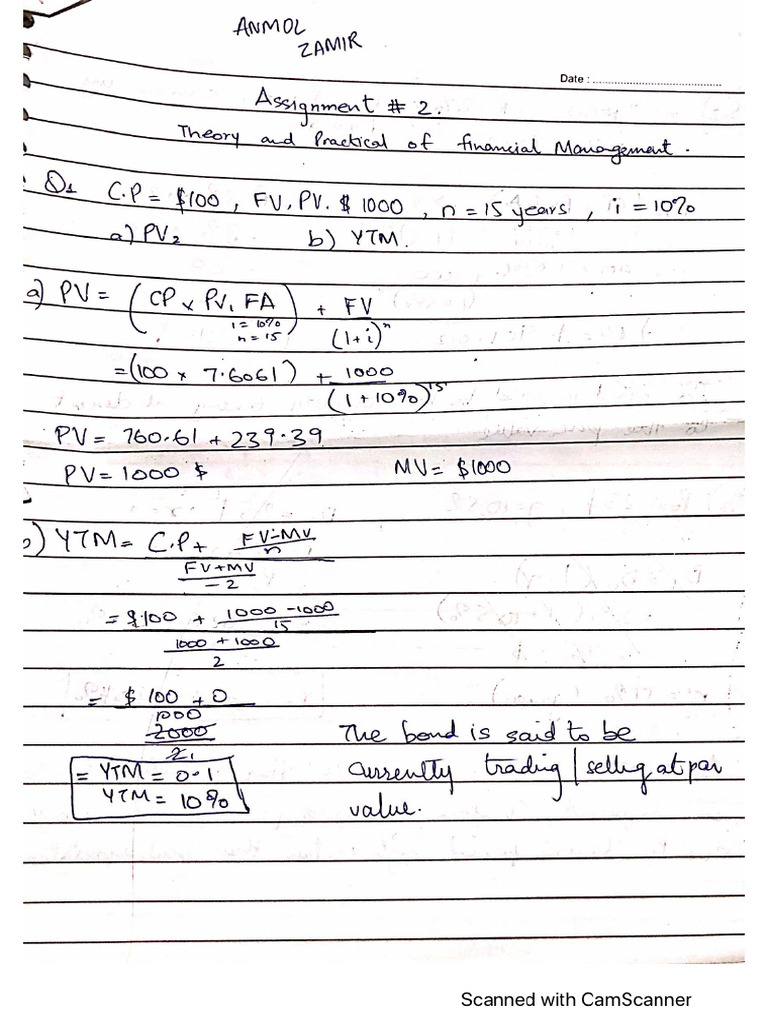 ANMOL
ZAMIR
Date : ..............................................
Assignment # 2.
Theory and Practical of financial Management.
Q1 C.P = $100 , FV, PV. $ 1000 , n = 15 years , i = 10%
a) PV2 b) YTM.
a) PV = (CP x PV, FA) + FV
i = 10%
n = 15 (1+i)^n
= (100 x 7.6061) + 1000
(1 + 10%)^15
PV = 760.61 + 239.39
PV = 1000 $ MV = $1000
b) YTM = C.P + FV-MV
n
FV+MV
2
= $100 + 1000 - 1000
15
1000 + 1000
2
= $ 100 + 0
1000
2000
2
= YTM = 0.1
YTM = 10%
The bond is said to be
currently trading / sellng at par
value.
Scanned with CamScanner